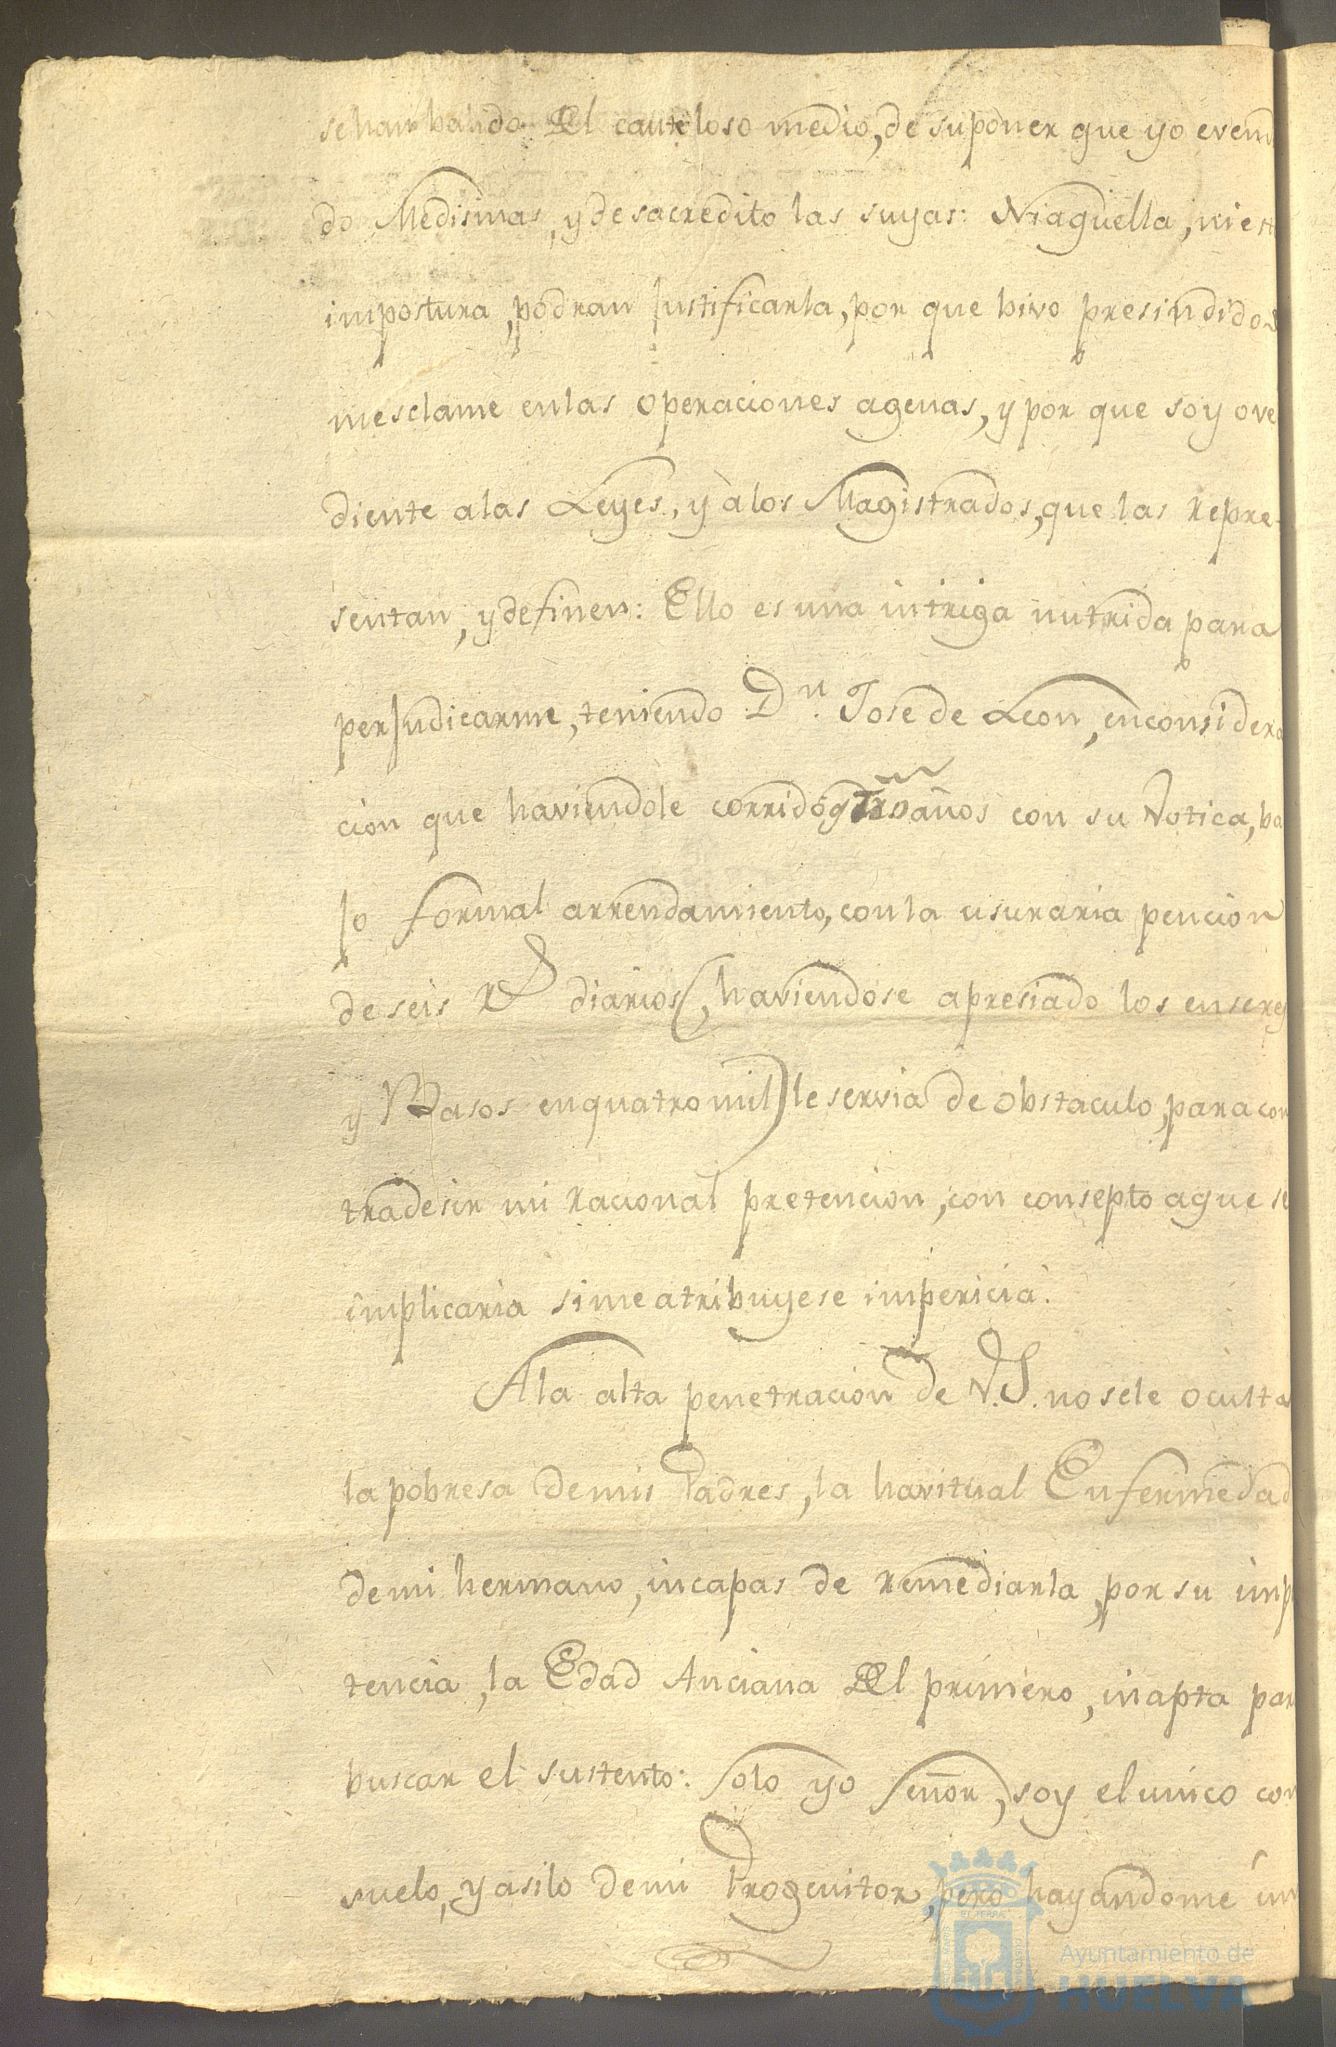 se han balido del cauteloso medio, de suponer que yo e ven
do Medisinas, y desacredito las suyas: Ni aquella, ni est
impostura, podran Justificarla, por que bivo presindido d
mesclame en las operaciones agenas, y por que soy ove
diente a las Leyes, y à los Magistrados, que las repre-
sentan, y definen: Ello es una intriga nutrida para
perJudicarme, teniendo Dn. Jose de Leon, en considera
cion que haviendole corrido qtrō años con su Votica, ba
Jo formal arrendamiento, con la usuraria pencion
de seis Rs diarios (, haviendose apresiado los enseres
y Basos en quatro mil) le servia de obstaculo, para con
tradesir mi racional pretencion, con consepto a que se
implicaria si me atribuyese impericia.
A la alta penetracion de V.S. no se le oculta
la pobresa de mis Padres, la havitual Enfermedad
de mi hermano, incapas de remediarla, por su imp
tencia, la Edad Anciana del primero, inapta par
buscar el sustento: Solo yo Señor, soy el unico con
suelo, y asilo de mi Progenitor, pero hayandome im
Ayuntamiento de
HUELVA